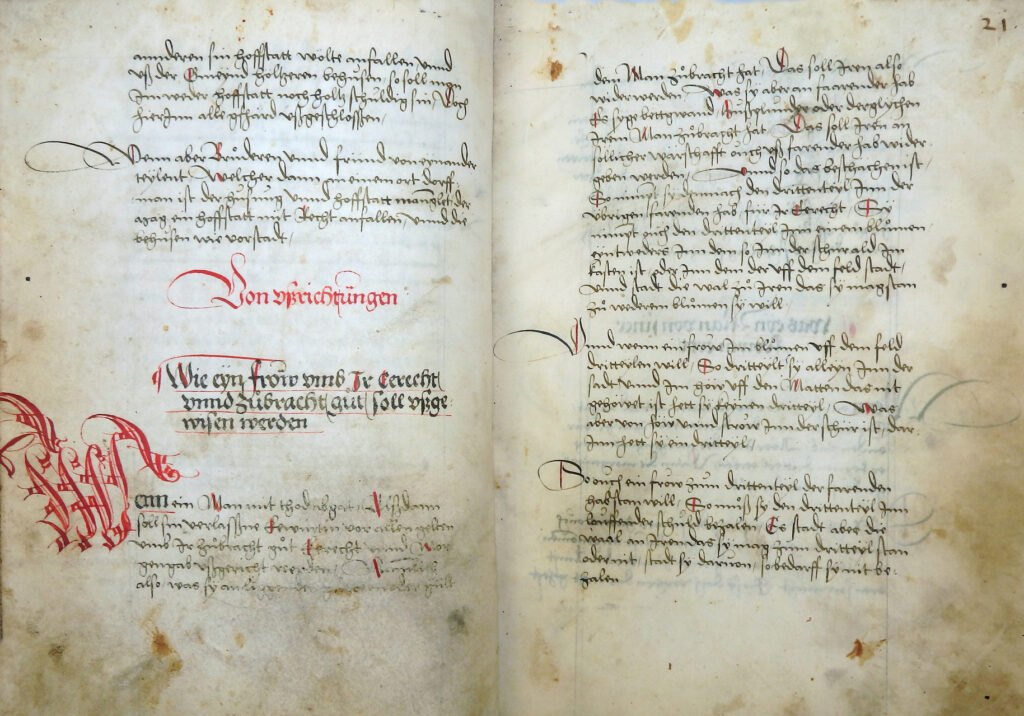 annderen sin hoffstatt wölte anfallen vnnd
vß der Gmeynd höltzeren behusen so soll man
Im weder hoffstatt noch holtz schuldig sin Doch
hierinn alle gfhärd vßgeschlossten
Wenn aber Brüderen vnnd fründ von einander
teilent Welcher dann an einem ort dorff
man ist der husung vnnd hoffstatt mannglet der
mag ein hoffstatt mit Recht anfallen vnnd die
behusen wie vorstadt
Von vßrichtungen
Wie eyn frow vmb Ir Eerecht
vnnd zůbracht gůt soll vßge-
wisen werden
Wenn ein Man mit thod abgat Als dann
soll sin verlassne Eewirtin vor allen gelten
vmb Ir zůbracht gůt Eerecht vnnd Mor
gengab vßgericht werden Namlich
also was sy an ligenden
21
dem Man zůbracht hat Das soll Iren also
wider werden Was sy aber an faarender hab
Es syge bettgwand Husplunder oder derglychen
Irem Man zůbracht hat Das soll Iren an
sollicher wärschafft ouch vß farender hab wider-
geben werden Vnnd so das beschächen ist
So nimmt sy dannach den drittenteyl Inn der
übrigen farenden hab für Ir Eerecht Sy
nimpt ouch den drittenteyl Inn einem blůmen
entweders Inn dem so Inn der schür ald Im
kasten ist oder Inn dem der vff dem feld stadt
vnnd stadt die wal zů Iren das sy mag stan
zů wederem blůmen sy will
Vnnd wenn ein frow Im blůmen vff dem feld
dritteylen will So dritteylt sy alleyn Inn der
sadt vnnd Im höw vff den Matten das nit
gehöwet ist hett sy keynen dritteyl Was
aber von höw vnnd strow Inn der schür ist dar
Inn hett sy ein dritteyl
So ouch ein frow zum drittenteyl der farenden
hab stan will So můß sy den drittenteyl Inn
louffender schuld bezalen Es stadt aber die
waal an Iren das sy mag zum dritteyl stan
oder nit stadt sy daruon so bedarff sy nit be-
zalen